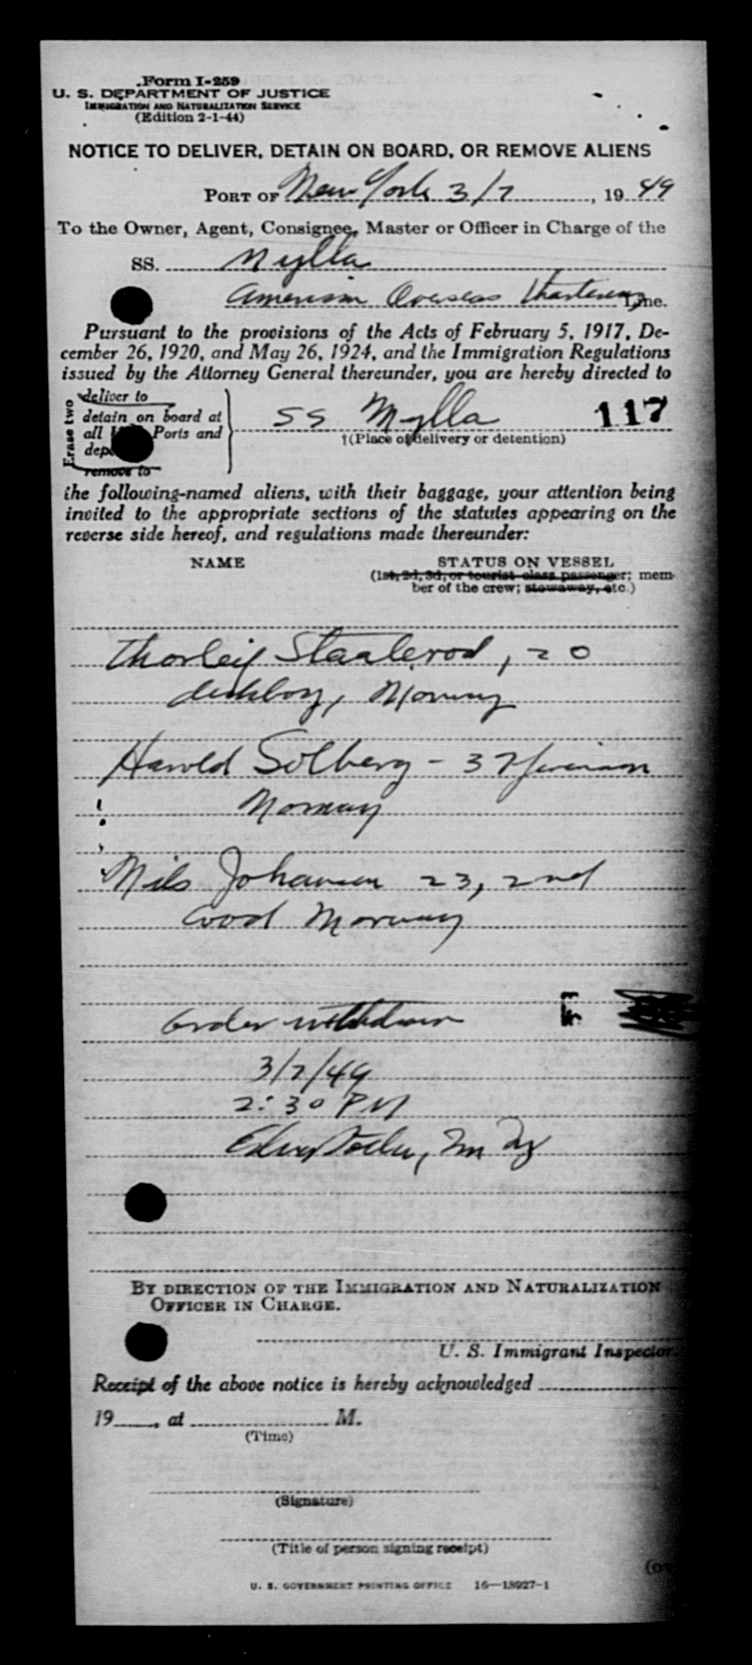 Form I-259
U. S. DEPARTMENT OF JUSTICE
IMMIGRATION AND NATURALIZATION SERVICE
(Edition 2-1-44)
NOTICE TO DELIVER, DETAIN ON BOARD, OR REMOVE ALIENS
PORT OF New York 3/7, 1949
To the Owner, Agent, Consignee, Master or Officer in Charge of the
SS. Mylla
American Overseas Chartering Line.
Pursuant to the provisions of the Acts of February 5, 1917, De-
cember 26, 1920, and May 26, 1924, and the Immigration Regulations
issued by the Attorney General thereunder, you are hereby directed to
Erase two
deliver to
detain on board at
all Ports and
remove to
SS Mylla 117
†(Place of delivery or detention)
the following-named aliens, with their baggage, your attention being
invited to the appropriate sections of the statutes appearing on the
reverse side hereof, and regulations made thereunder:
NAME STATUS ON VESSEL
(1st, 2d, 3d, or tourist class passenger; mem-
ber of the crew; stowaway, etc.)
Thorleif Staalerod, 20
deckboy, Norway
Harold Solberg - 37 fireman
Norway
Nils Johansen 23, 2nd
cook Norway
Order withdrawn
3/7/49
2:30 PM
BY DIRECTION OF THE IMMIGRATION AND NATURALIZATION
OFFICER IN CHARGE.
U. S. Immigrant Inspector.
Receipt of the above notice is hereby acknowledged
19____, at M.
(Time)
(Signature)
(Title of person signing receipt)
U. S. GOVERNMENT PRINTING OFFICE 16—18927-1